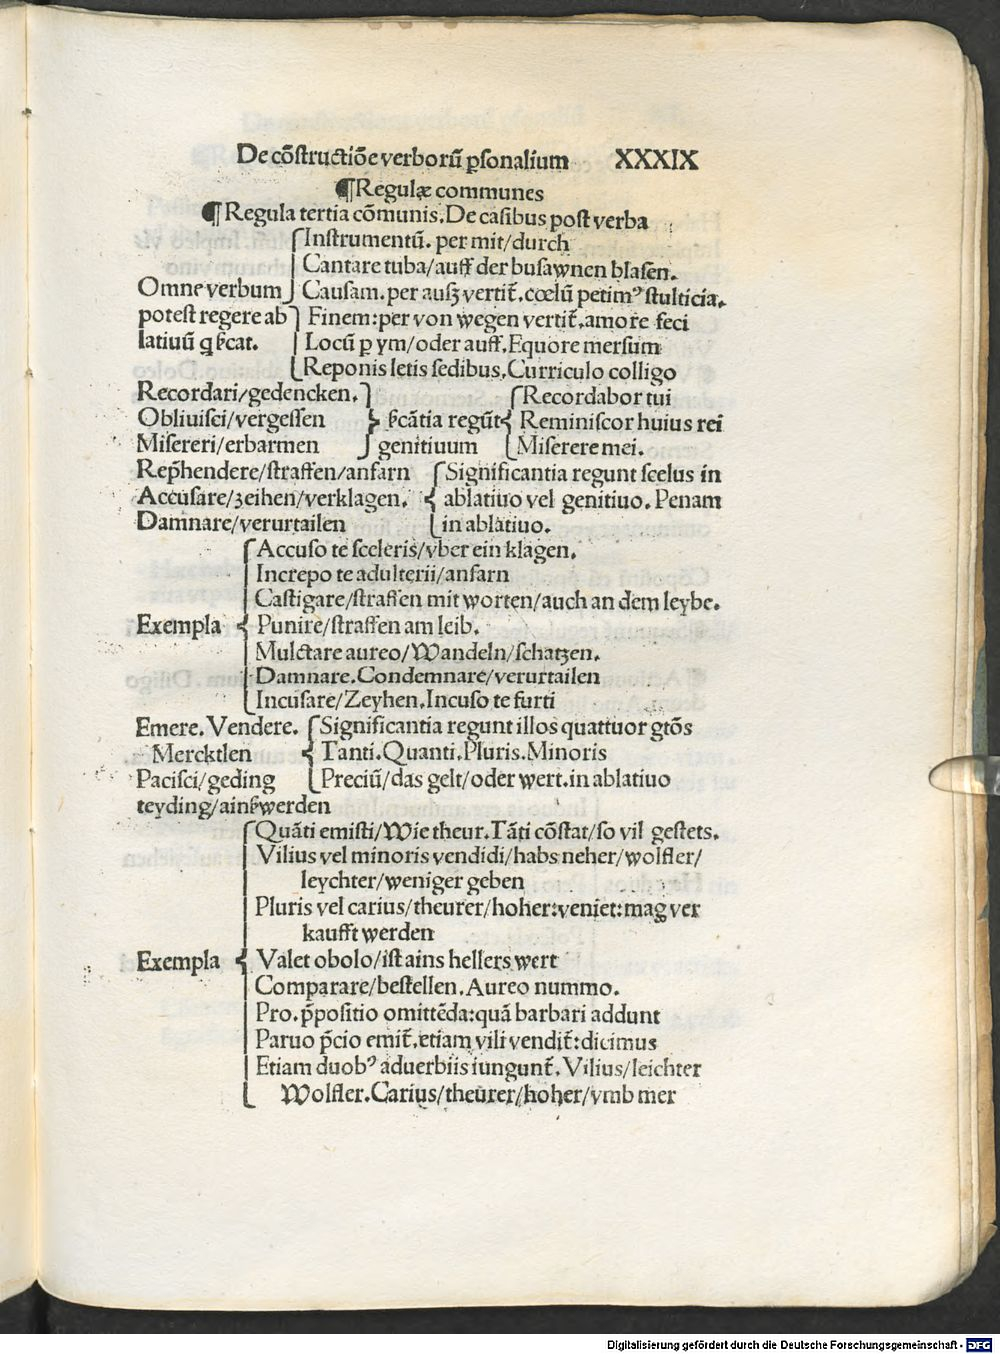 De cõstructiõe verborũ ꝑsonalium XXXIX
¶Regulæ communes
¶Regula tertia cõmunis. De casibus post verba
Instrumentũ. per mit/durch
Cantare tuba/auff der busawnen blasen.
Omne verbum Causam. per ausz vertit̃. cœlũ petimꝰ stulticia.
potest regere ab Finem: per von wegen vertit̃. amore feci
latiuũ q̃ ſ̃cat. Locũ ꝑ ym/oder auff. Equore mersum
Reponis letis sedibus. Curriculo colligo
Recordari/gedencken. Recordabor tui
Obliuisci/vergessen ſ̃cãtia regũt Reminiscor huius rei
Misereri/erbarmen genitiuum Miserere mei.
Rep̃hendere/straffen/anfarn Significantia regunt scelus in
Accusare/zeihen/verklagen. ablatiuo vel genitiuo. Penam
Damnare/verurtailen in ablatiuo.
Accuso te sceleris/vber ein klagen.
Increpo te adulterii/anfarn
Castigare/straffen mit worten/auch an dem leybe.
Exempla Punire/straffen am leib.
Mulctare aureo/Wandeln/schatzen.
Damnare. Condemnare/verurtailen
Incusare/Zeyhen. Incuso te furti
Emere. Vendere. Significantia regunt illos quattuor gtõs
Mercktlen Tanti. Quanti. Pluris. Minoris
Pacisci/geding Preciũ/das gelt/oder wert. in ablatiuo
teyding/ainſ̃ werden
Quãti emisti/Wie theur. Tãti cõstat/so vil gestets.
Vilius vel minoris vendidi/habs neher/wolfler/
leychter/weniger geben
Pluris vel carius/theurer/hoher: veniet: mag ver
kaufft werden
Exempla Valet obolo/ist ains hellers wert
Comparare/bestellen. Aureo nummo.
Pro. p̃positio omittẽda: quã barbari addunt
Paruo p̃cio emit̃. etiam vili vendit̃: dicimus
Etiam duobꝰ aduerbiis iungunt̃. Vilius/leichter
Wolfler. Carius/theurer/hoher/vmb mer
Digitalisierung gefördert durch die Deutsche Forschungsgemeinschaft - DFG